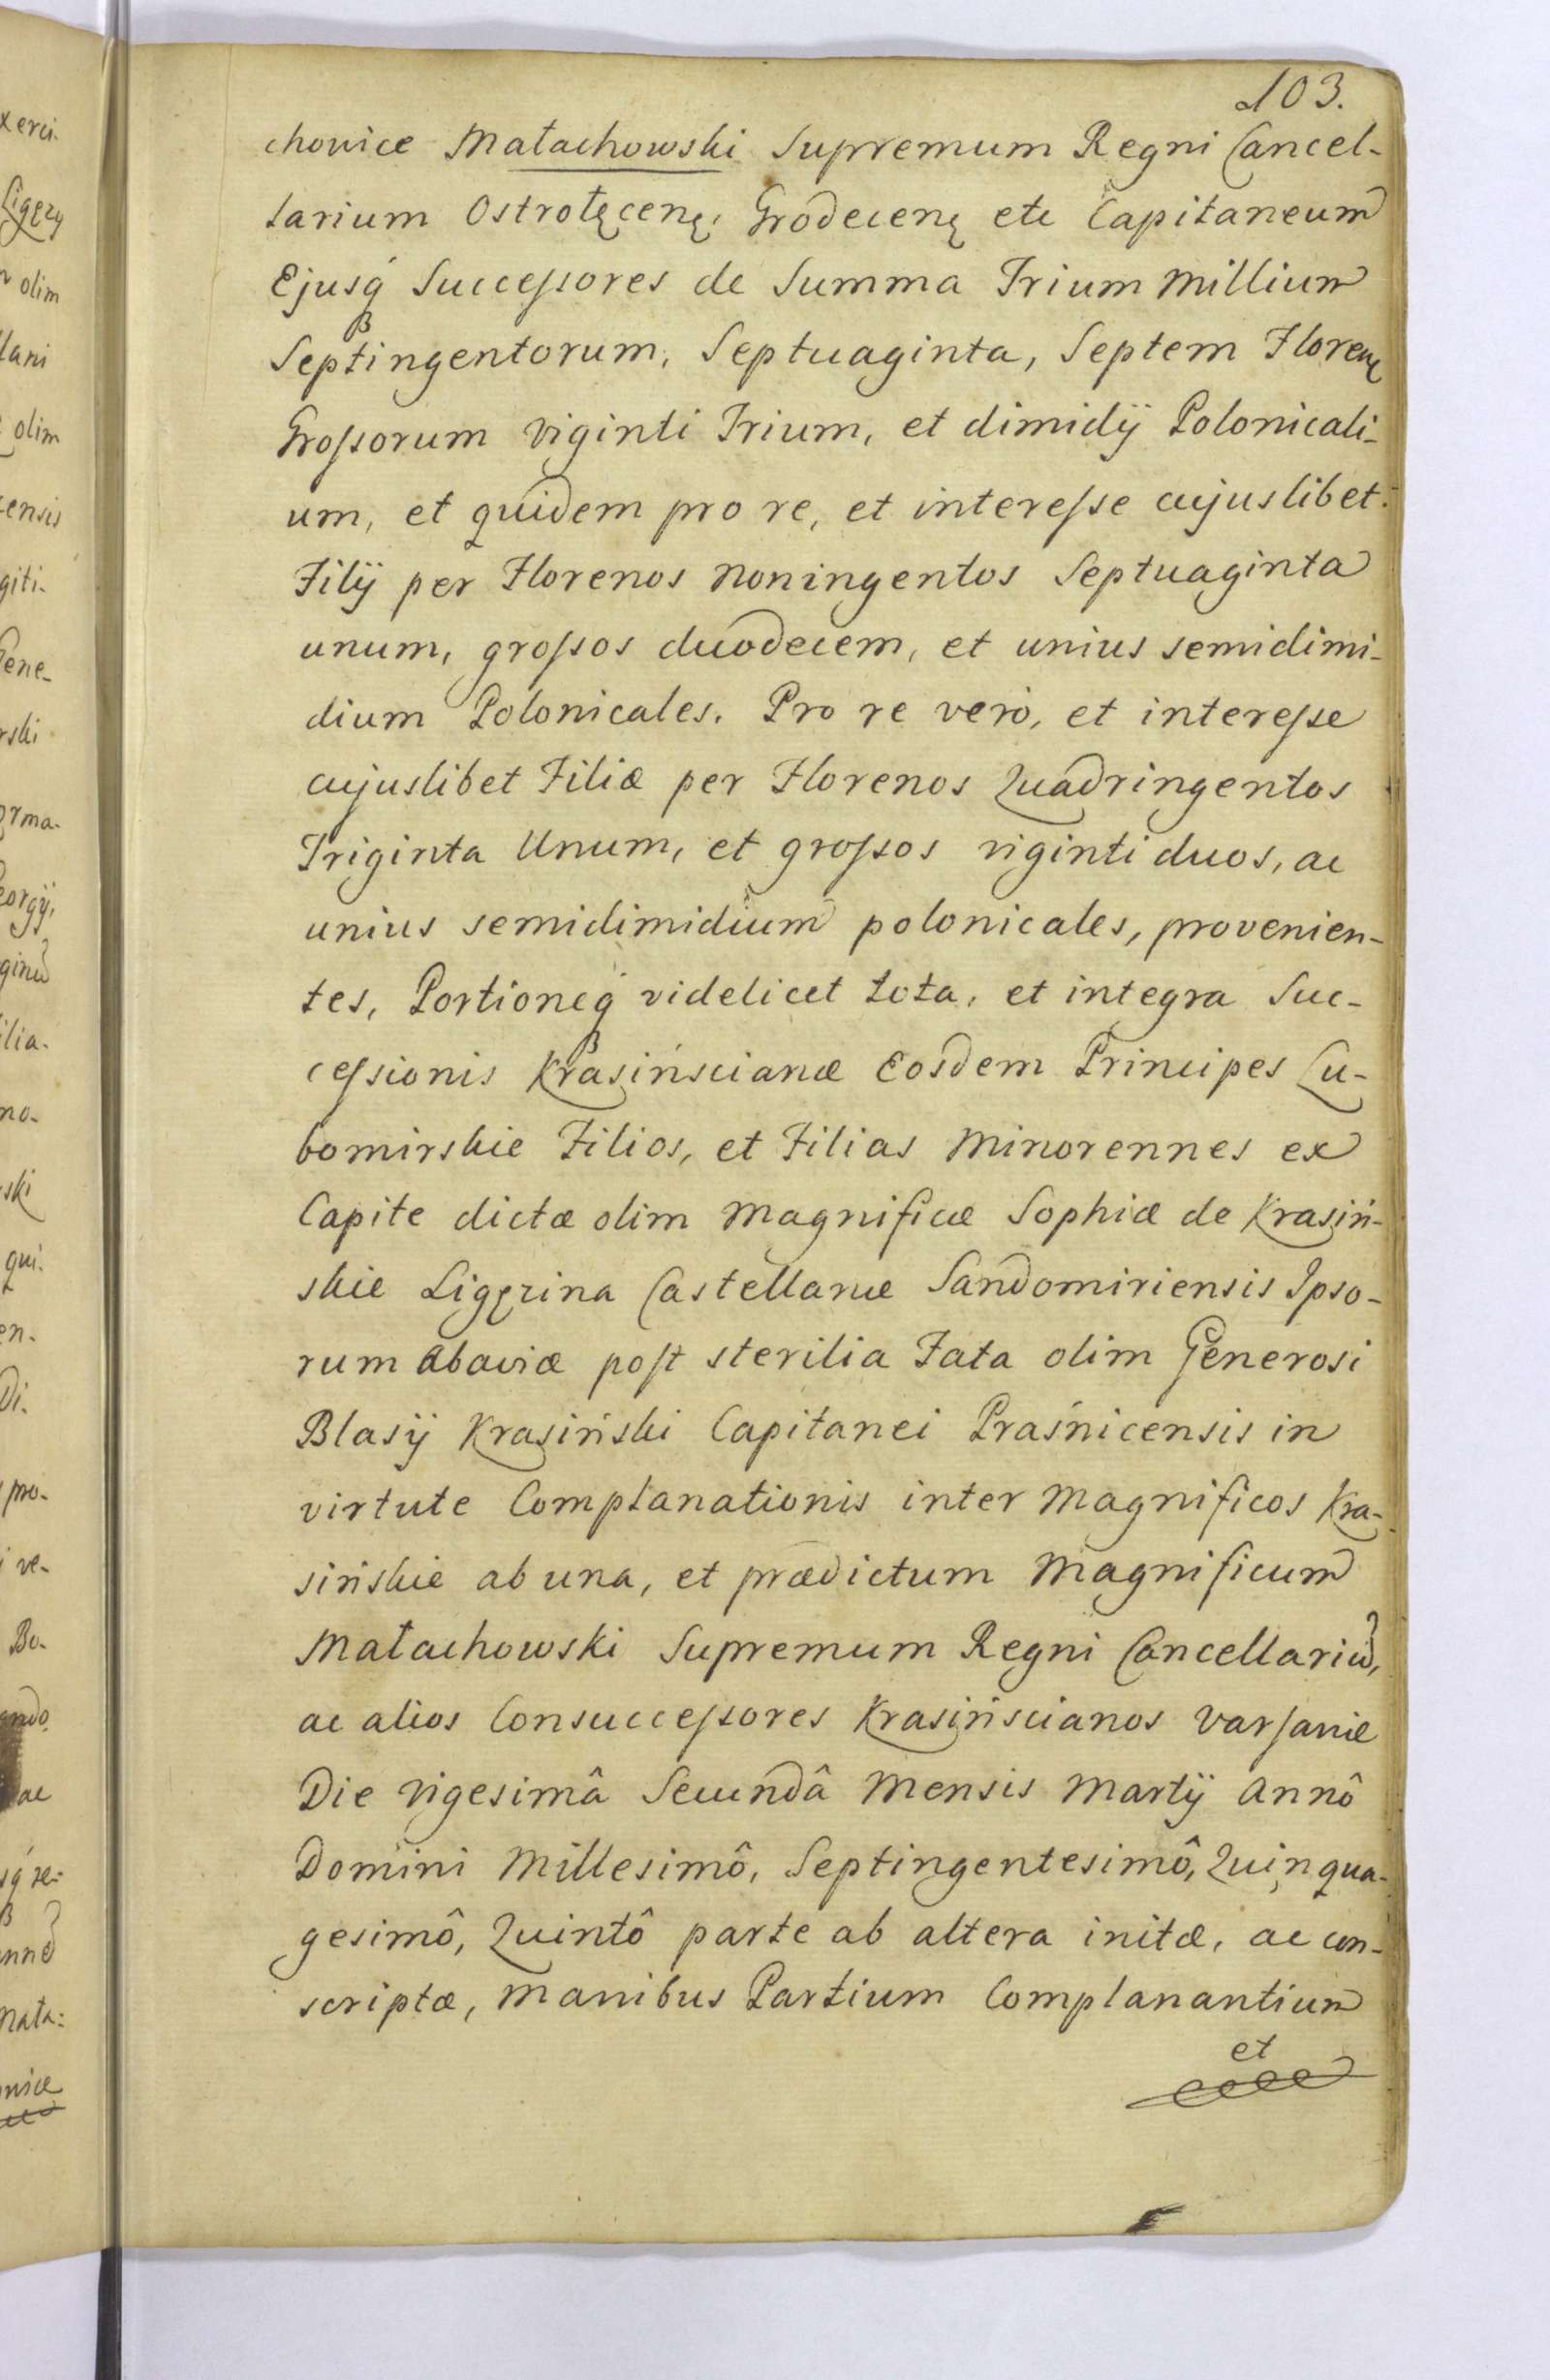 103.
chovice Małachowski Supremum Regni Cancel-
larium Ostrołęcenę, Grodecenę etc Capitaneum
Ejusq́ Succeſsores de Summa Trium Millium
Septingentorum, Septuaginta, Septem Florenę
Groſsorum Viginti Trium, et dimidÿ Polonicali-
um, et quidem pro re, et intereſse cujuslibet
Filÿ per Florenos Noningentos Septuaginta
unum, groſsos duodecem, et unius semidimi-
dium Polonicales. Pro re verò, et intereſse
cujuslibet Filiæ per Florenos Quadringentos
Triginta Unum, et groſsos viginti duos, ac
unius semidimidium polonicales, provenien-
tes, Portioneq́ videlicet tota, et integra Suc-
ceſsionis Krasińscianæ Eosdem Principes Lu-
bomirskie Filios, et Filias Minorennes ex
Capite dictæ olim Magnificæ Sophiæ de Krasiń-
skie Ligęzina Castellanæ Sandomiriensis Ipso-
rum Abaviæ poſt sterilia Fata olim Generosi
Blasÿ Krasiński Capitanei Praśnicensis in
virtute Complanationis inter Magnificos Kra-
sińskie ab una, et prædictum Magnificum
Małachowski Supremum Regni Cancellariũ,
ac alios Consucceſsores Krasińscianos Varſaviæ
Die Vigesimâ Secundâ Mensis Martÿ Annô
Domini Millesimô, Septingentesimô, Quinqua-
gesimô, Quintô parte ab altera initæ, ac con-
scriptæ, Manibus Partium Complanantium
et